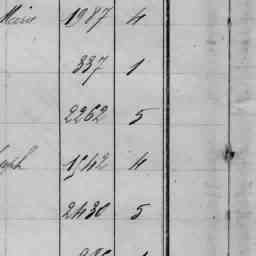 Marie 1987 4
337 1
2262 5
1542 4
2430 5